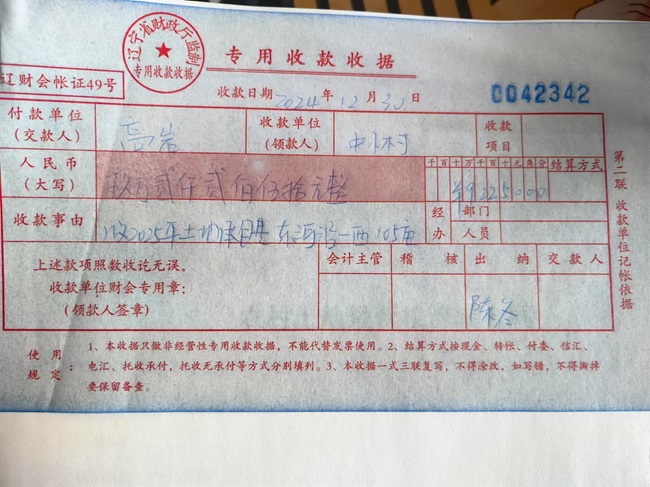 辽宁省财政厅监制
专用收款收据
专用收款收据
辽财会帐证49号
收款日期 2024 年 12 月 30 日
0042342
付款单位
(交款人)
高岩
收款单位
(领款人)
中小村
收款
项目
人民币
(大写)
玖万贰仟贰佰伍拾元整
千百十万千百十元角分
¥9225000
结算方式
收款事由
收2025年土地承包费 东河沿一西105亩
经办
部门
人员
上述款项照数收讫无误。
收款单位财会专用章:
(领款人签章)
会计主管
稽核
出纳
交款人
陈冬
第二联 收款单位记帐依据
使用规定:
1、本收据只做非经营性专用收款收据,不能代替发票使用。2、结算方式按现金、转帐、付委、信汇、
电汇、托收承付,托收无承付等方式分别填列。3、本收据一式三联复写,不得涂改,如写错,不得撕掉
要保留备查。